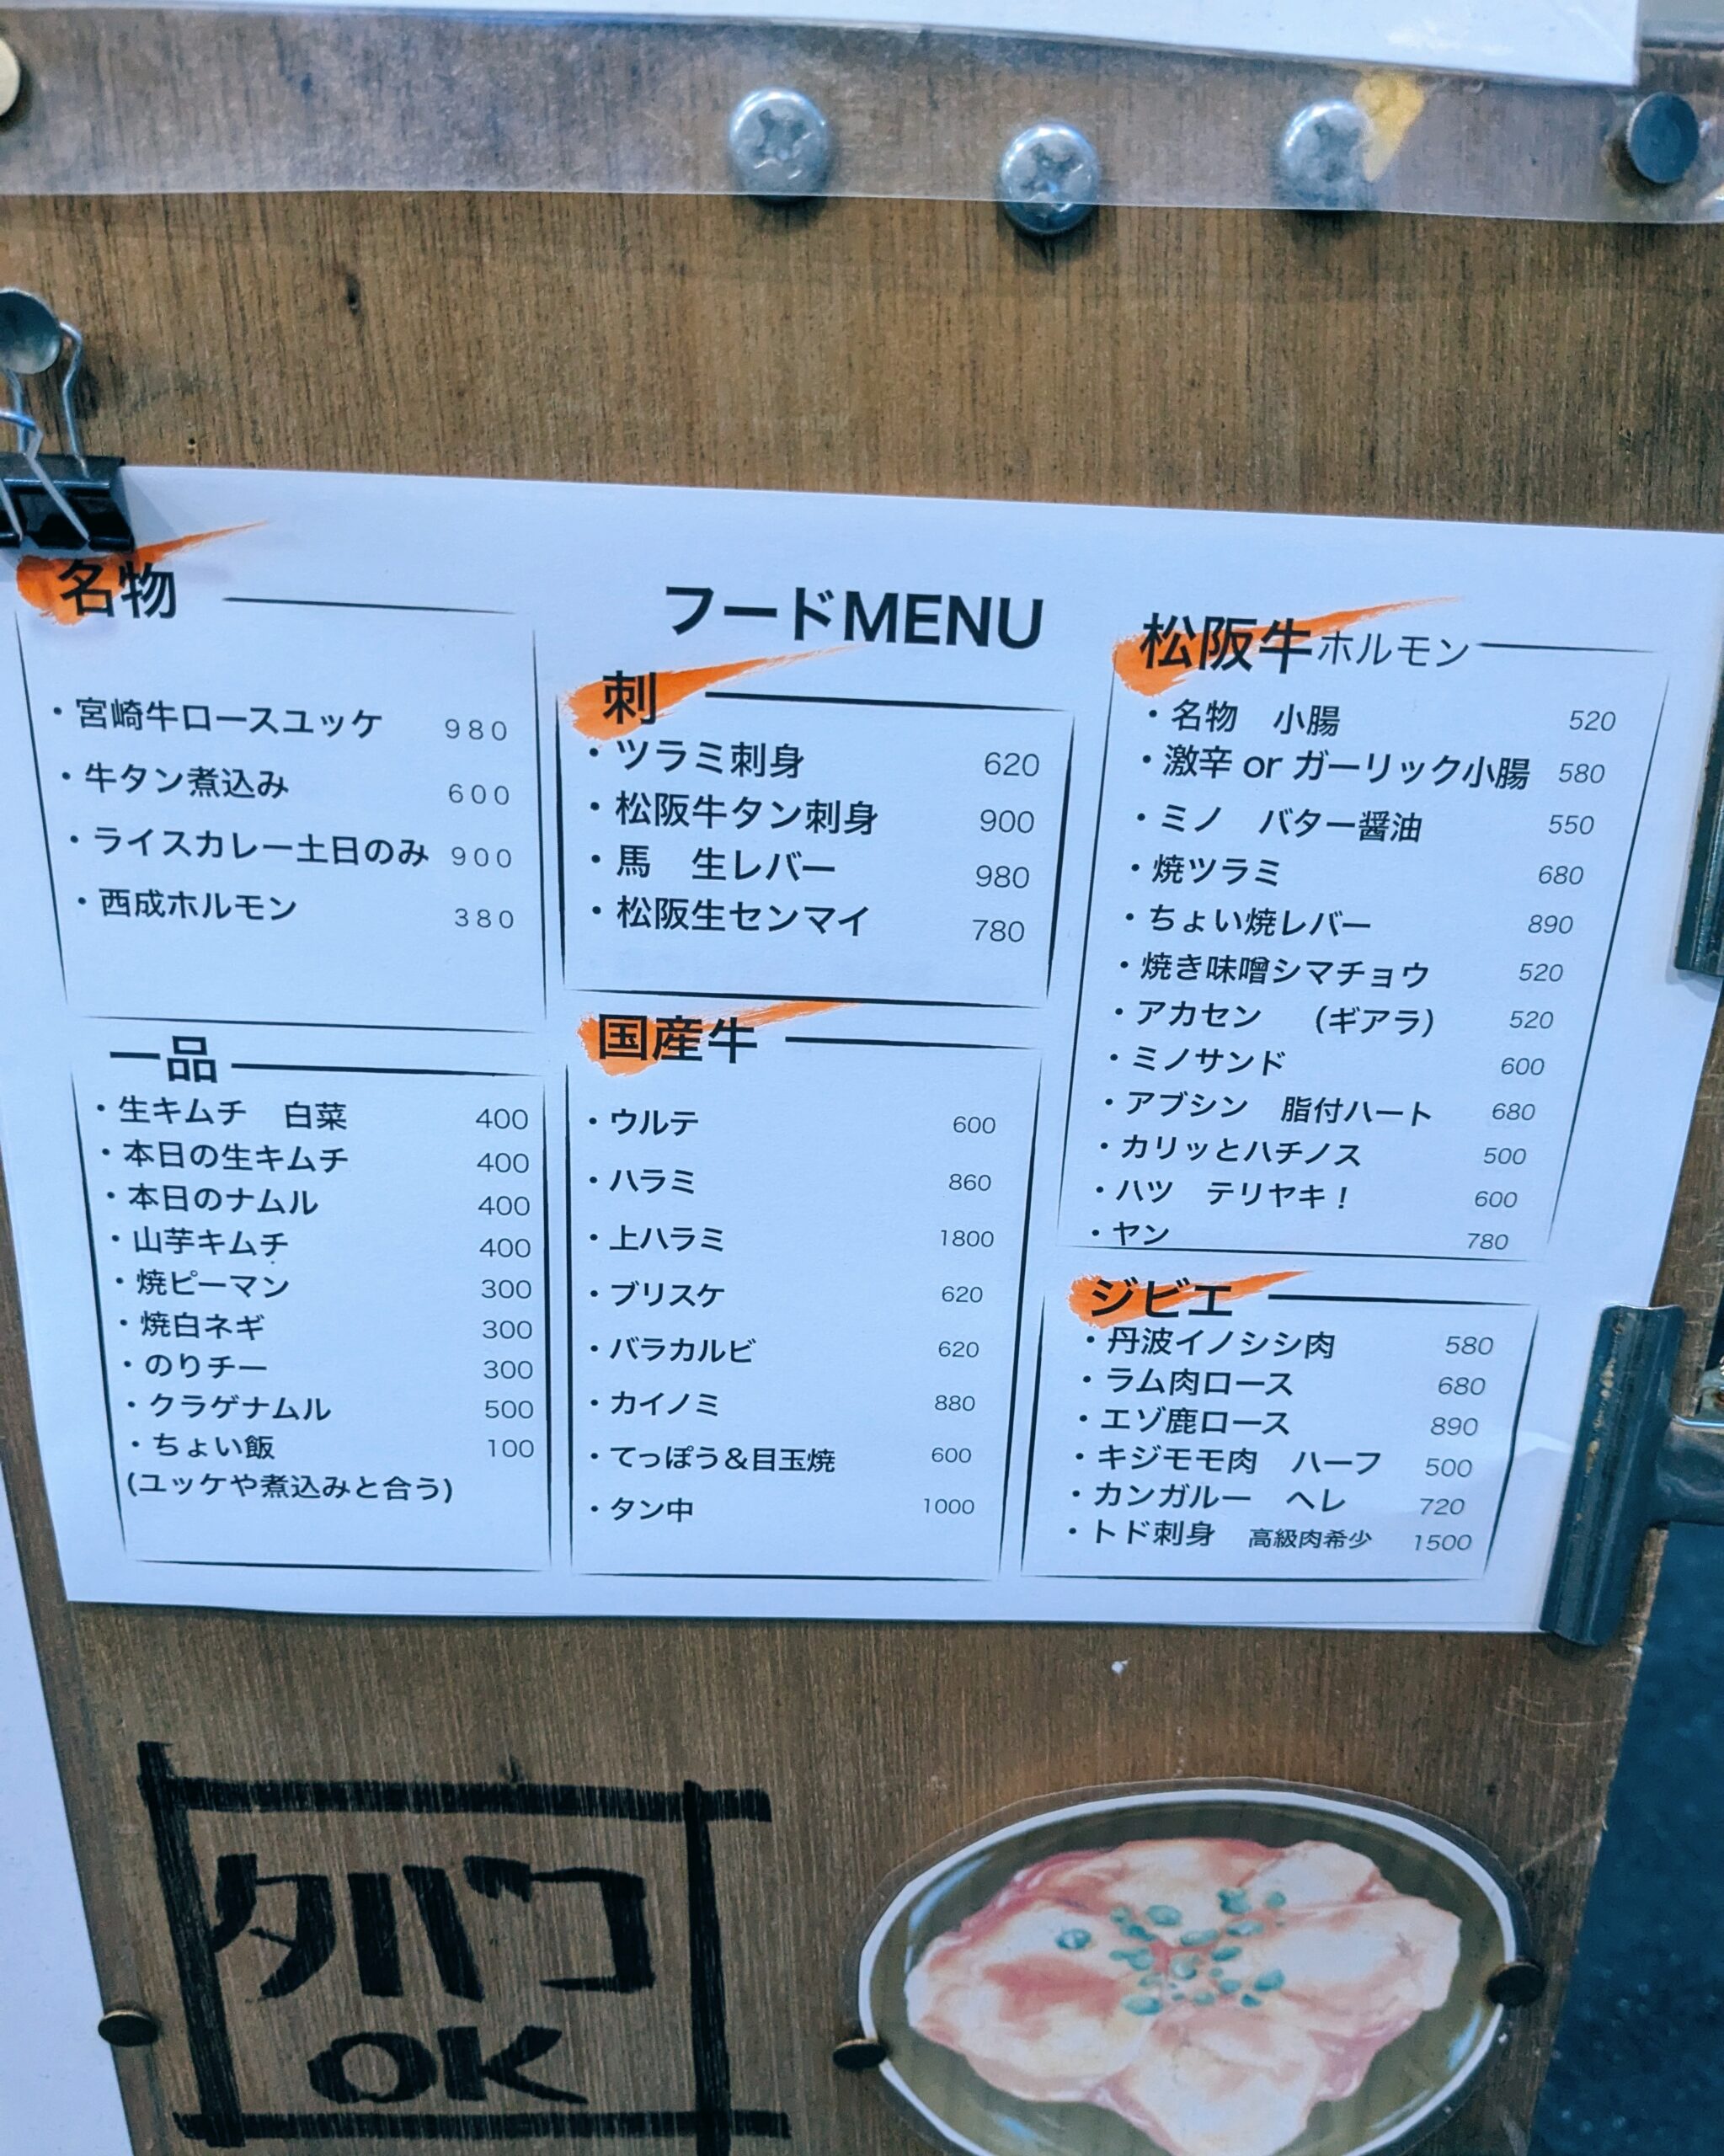 フードMENU
名物
・宮崎牛ロースユッケ 980
・牛タン煮込み 600
・ライスカレー土日のみ 900
・西成ホルモン 380
一品
・生キムチ 白菜 400
・本日の生キムチ 400
・本日のナムル 400
・山芋キムチ 400
・焼ピーマン 300
・焼白ネギ 300
・のりチー 300
・クラゲナムル 500
・ちょい飯 100
(ユッケや煮込みと合う)
刺
・ツラミ刺身 620
・松阪牛タン刺身 900
・馬 生レバー 980
・松阪生センマイ 780
国産牛
・ウルテ 600
・ハラミ 860
・上ハラミ 1800
・ブリスケ 620
・バラカルビ 620
・カイノミ 880
・てっぽう＆目玉焼 600
・タン中 1000
松阪牛ホルモン
・名物 小腸 520
・激辛 or ガーリック小腸 580
・ミノ バター醤油 550
・焼ツラミ 680
・ちょい焼レバー 890
・焼き味噌シマチョウ 520
・アカセン （ギアラ） 520
・ミノサンド 600
・アブシン 脂付ハート 680
・カリッとハチノス 500
・ハツ テリヤキ！ 600
・ヤン 780
ジビエ
・丹波イノシシ肉 580
・ラム肉ロース 680
・エゾ鹿ロース 890
・キジモモ肉 ハーフ 500
・カンガルー ヘレ 720
・トド刺身 高級肉希少 1500
タバコ
OK